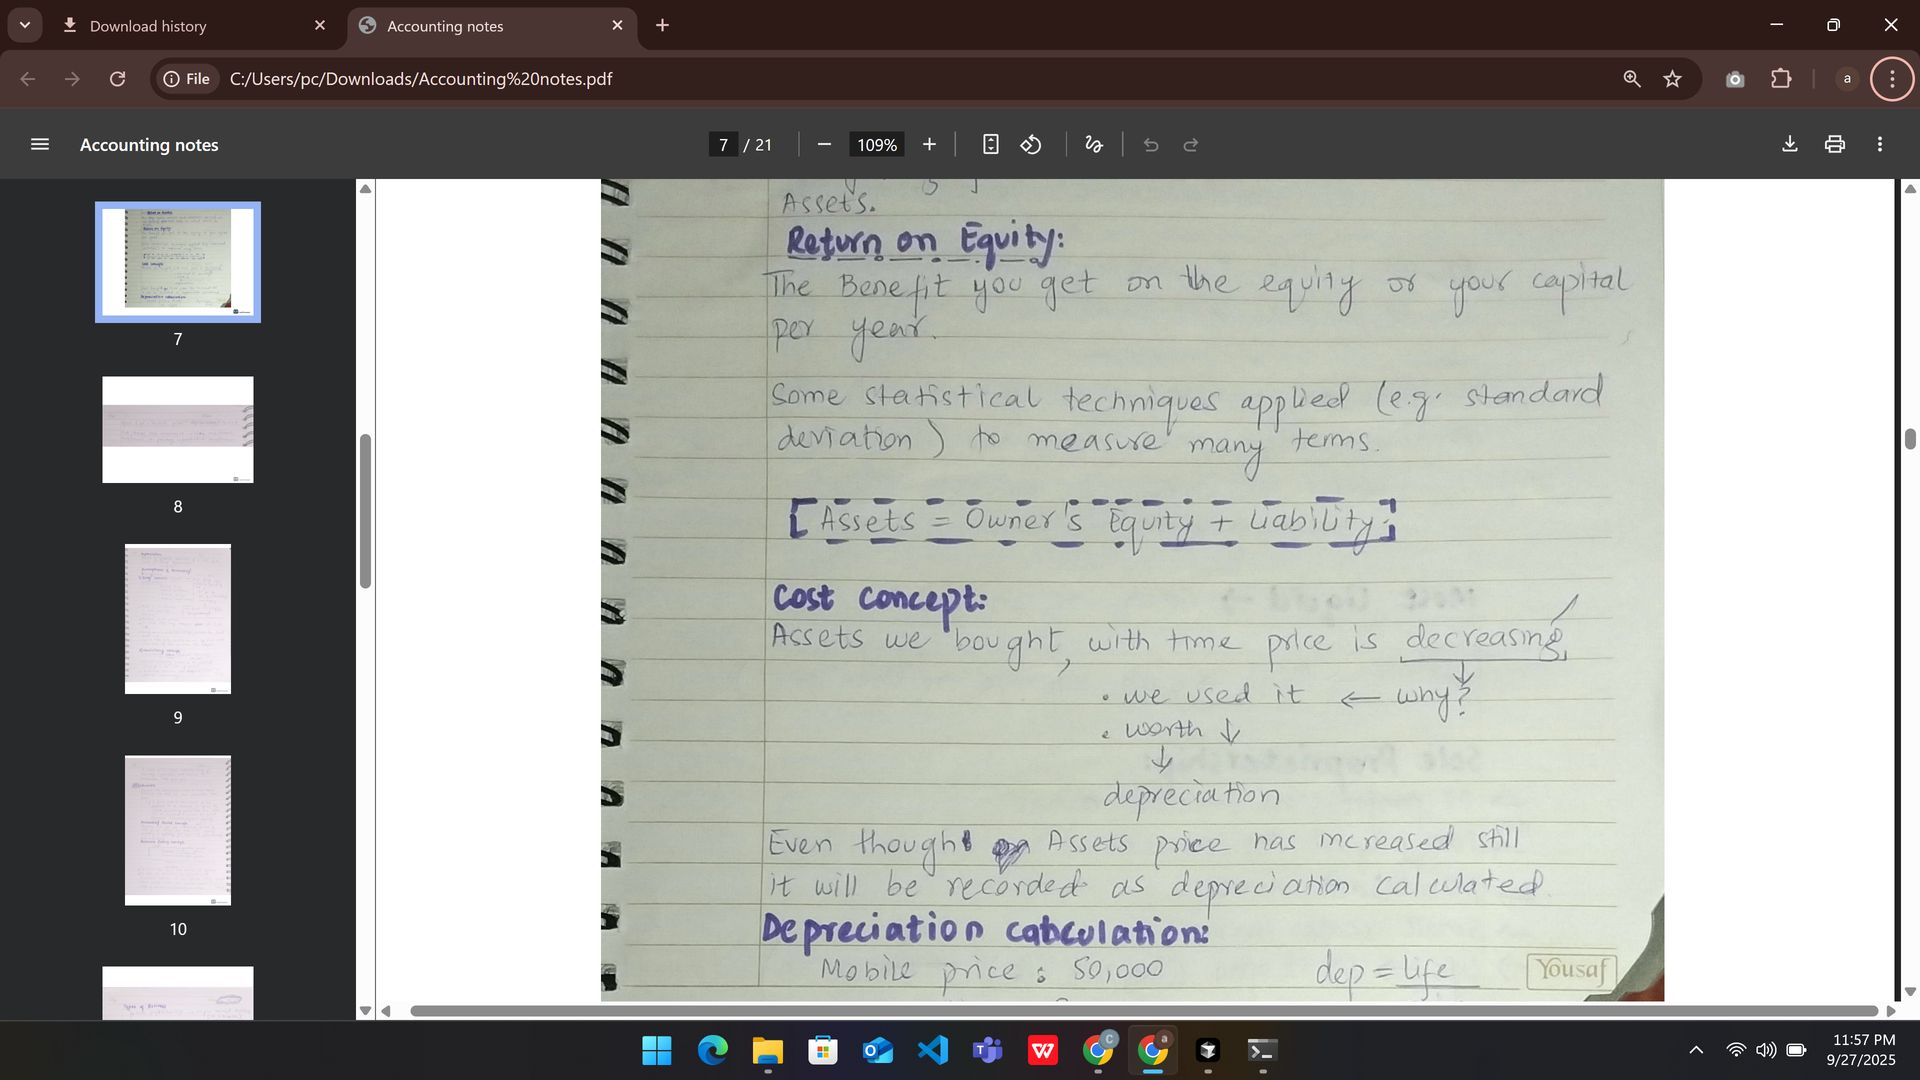 Download history
Accounting notes
File
C:/Users/pc/Downloads/Accounting%20notes.pdf
a
Accounting notes
7 / 21
109%
7
8
9
10
Assets.
Return on Equity:
The Benefit you get on the equity or your capital
per year.
Some statistical techniques applied (e.g. standard
deviation) to measure many terms.
[Assets = Owner's Equity + Liability]
Cost Concept:
Assets we bought, with time price is decreasing
• we used it ← why?
• worth ↓
↓
depreciation
Even though Assets price has increased still
it will be recorded as depreciation calculated.
Depreciation calculation:
Mobile price : 50,000 dep = life
Yousaf
C
a
11:57 PM
9/27/2025